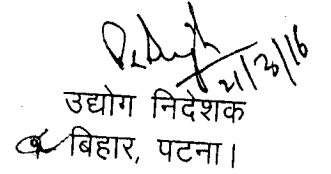 21/3/16
उद्योग निदेशक
बिहार, पटना।